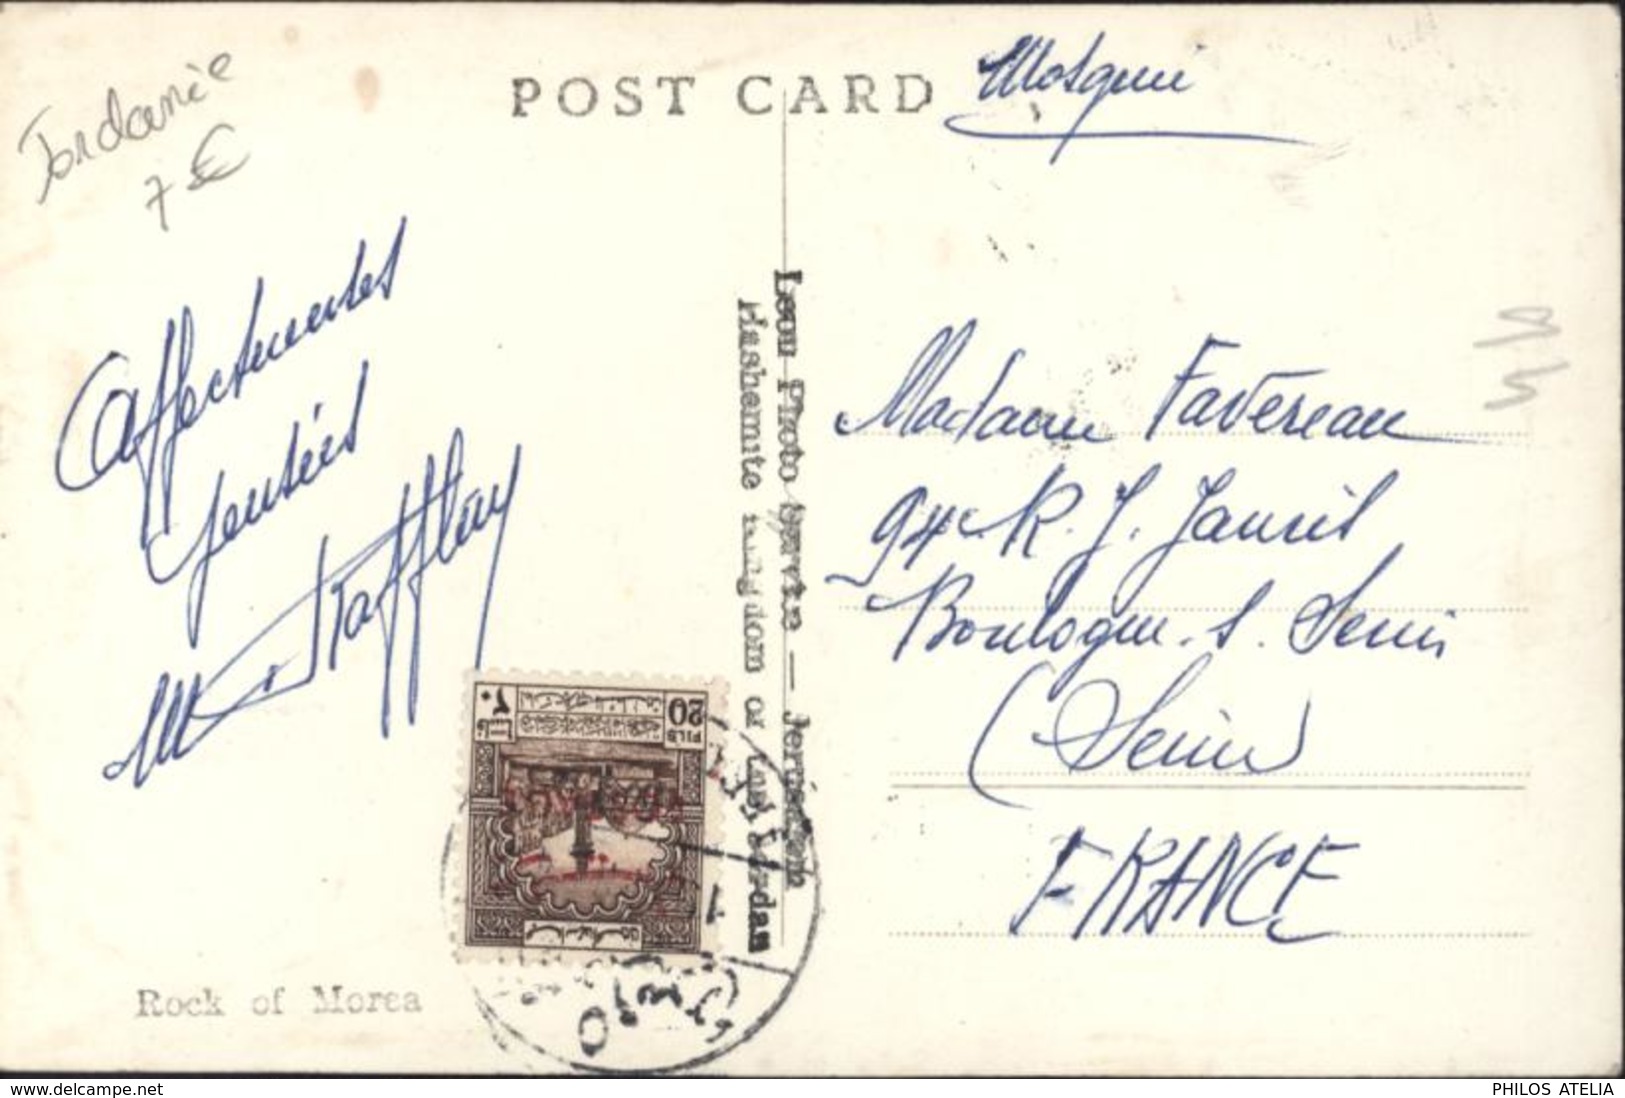 Jordanie
7 €
POST CARD
Mosquée
Affectueuses
pensées
Leon Photo Service — Jerusalem
Hashemite Kingdom of the Jordan
Madame Favereau
94 R. J. Jaurès
Boulogne. S. Seine
(Seine)
FRANCE
20
FILS
٢٠
Rock of Morea
delcampe.net
PHILOS ATELIA